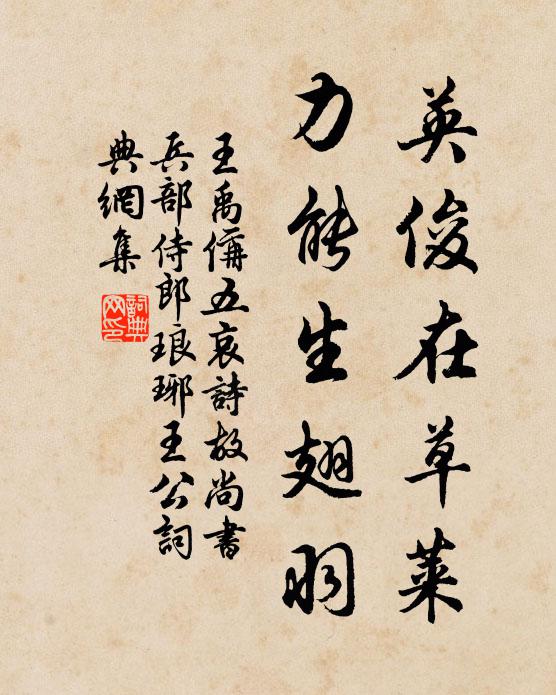 英俊在草萊
力能生翅羽
王禹偁五哀詩故尚書
兵部侍郎琅琊王公詞
典網集
詞典
网印